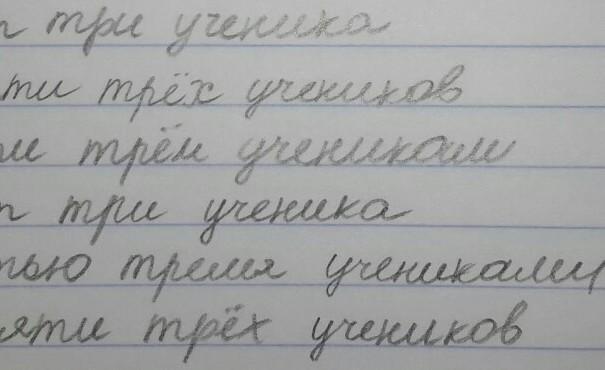 т три ученика
ти трёх учеников
и трём ученикам
т три ученика
тью тремя учениками
яти трёх учеников